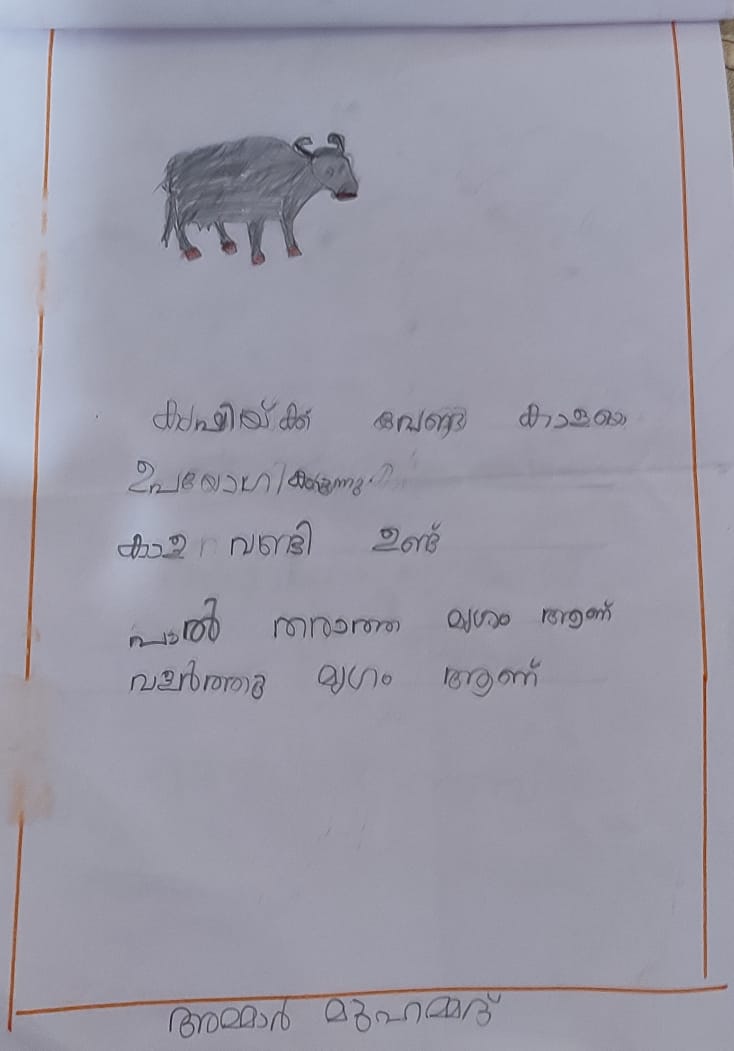 കൃഷിയ്ക്ക് വേണ്ടി കാളയെ
ഉപയോഗിക്കുന്നു
കാള വണ്ടി ഉണ്ട്
പാൽ തരാത്ത മൃഗം ആണ്
വളർത്തു മൃഗം ആണ്
അമ്മാർ മുഹമ്മദ്